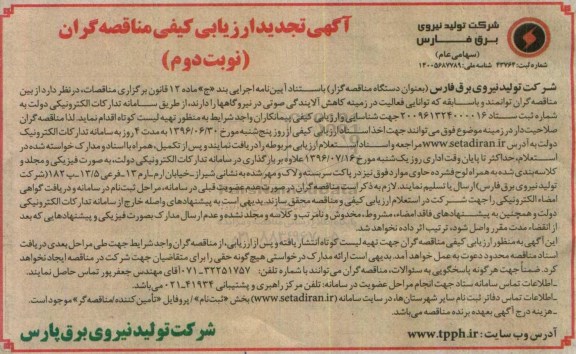 شرکت تولید نیروی
برق فارس
(سهامی عام)
شماره ثبت: ۴۳۷۶۲ شناسه ملی: ۱۴۰۰۵۶۸۷۷۸۹
آگهی تجدید ارزیابی کیفی مناقصه گران
(نوبت دوم)
شرکت تولید نیروی برق فارس (بعنوان دستگاه مناقصه گزار) باستناد آیین‌نامه اجرایی بند «ج» ماده ۱۲ قانون برگزاری مناقصات، در نظر دارد از بین
مناقصه گران توانمند و باسابقه که توانایی فعالیت در زمینه کاهش آلایندگی صوتی در نیروگاهها را دارند، از طریق سامانه تدارکات الکترونیکی دولت به
شماره ثبت ستاد ۲۰۰۹۶۱۳۲۴۰۰۰۰۱۶ جهت شناسایی و ارزیابی کیفی پیمانکاران واجد شرایط به منظور تهیه لیست کوتاه اقدام نماید. لذا مناقصه گران
صلاحیت‌دار در زمینه موضوع فوق می توانند جهت اخذ اسناد ارزیابی کیفی از روز پنج شنبه مورخ ۱۳۹۶/۰۶/۳۰ به مدت ۴ روز به سامانه تدارکات الکترونیک
دولت به آدرس www.setadiran.ir مراجعه و اسناد استعلام ارزیابی مربوطه را دریافت نمایند و پس از تکمیل، همراه با اسناد و مدارک خواسته شده در
استعلام، حداکثر تا پایان وقت اداری روز یک شنبه مورخ ۱۳۹۶/۰۷/۱۶ علاوه بر بارگذاری در سامانه تدارکات الکترونیکی دولت، به صورت فیزیکی و مجلد و
کلاسه بندی شده به همراه لوح فشرده حاوی موارد فوق نیز در پاکت سربسته و لاک و مهر شده به نشانی شیراز ـ خیابان ارم ـ ارم ۱۳ ـ فرعی ۱۳/۵ ـ پ ۱۸۲ (شرکت
تولید نیروی برق فارس) ارسال یا تسلیم نمایند. لازم به ذکر است مناقصه گران در صورت عدم عضویت قبلی در سامانه، مراحل ثبت نام در سامانه و دریافت گواهی
امضاء الکترونیکی را جهت شرکت در استعلام ارزیابی کیفی و مناقصه محقق سازند. بدیهی است به پیشنهادهای واصله خارج از سامانه تدارکات الکترونیکی
دولت و همچنین به پیشنهادهای فاقد امضاء، مشروط، مخدوش و نامرتب و کلاسه و مجلد نشده و عدم ارسال مدارک بصورت فیزیکی و پیشنهادهایی که بعد
از انقضاء مدت مقرر واصل شود، ترتیب اثر داده نخواهد شد.
این آگهی به منظور ارزیابی کیفی مناقصه گران جهت تهیه لیست کوتاه انتشار یافته و پس از ارزیابی، از مناقصه گران واجد شرایط جهت طی مراحل بعدی دریافت
اسناد مناقصه محدود دعوت به عمل خواهد آمد. بدیهی است ارائه مدارک درخواستی هیچ گونه حقی را برای متقاضیان جهت شرکت در مناقصه ایجاد نخواهد
کرد. ضمناً جهت هر گونه پاسخگویی به سئوالات، مناقصه گران می توانند با شماره تلفن: ۳۲۲۵۱۷۵۷-۰۷۱ آقای مهندس جعفرپور تماس حاصل نمایند.
ـ اطلاعات تماس سامانه ستاد جهت انجام مراحل عضویت در سامانه: تلفن مرکز راهبری و پشتیبانی ۴۱۹۳۴-۰۲۱ می باشد.
ـ اطلاعات تماس دفاتر ثبت نام سایر شهرستان‌ها، در سایت سامانه (www.setadiran.ir) بخش «ثبت نام» / پروفایل «تأمین کننده/مناقصه گر» موجود است.
ـ هزینه درج آگهی بعهده برنده مناقصه می باشد.
آدرس وب سایت: www.tpph.ir
شرکت تولید نیروی برق پارس